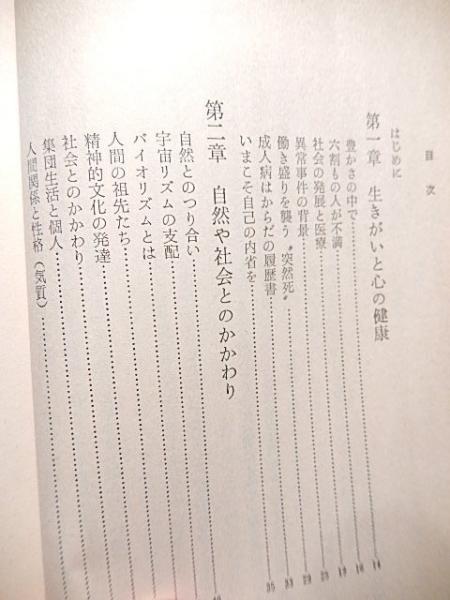 目次
はじめに
第一章 生きがいと心の健康
豊かさの中で…14
六割もの人が不満…16
社会の発展と医療…19
異常事件の背景…23
働き盛りを襲う〝突然死〟…29
成人病はからだの履歴書…33
いまこそ自己の内省を…35
第二章 自然や社会とのかかわり
自然とのつり合い…
宇宙リズムの支配…
バイオリズムとは…
人間の祖先たち…
精神的文化の発達…
社会とのかかわり…
集団生活と個人…
人間関係と性格(気質)…